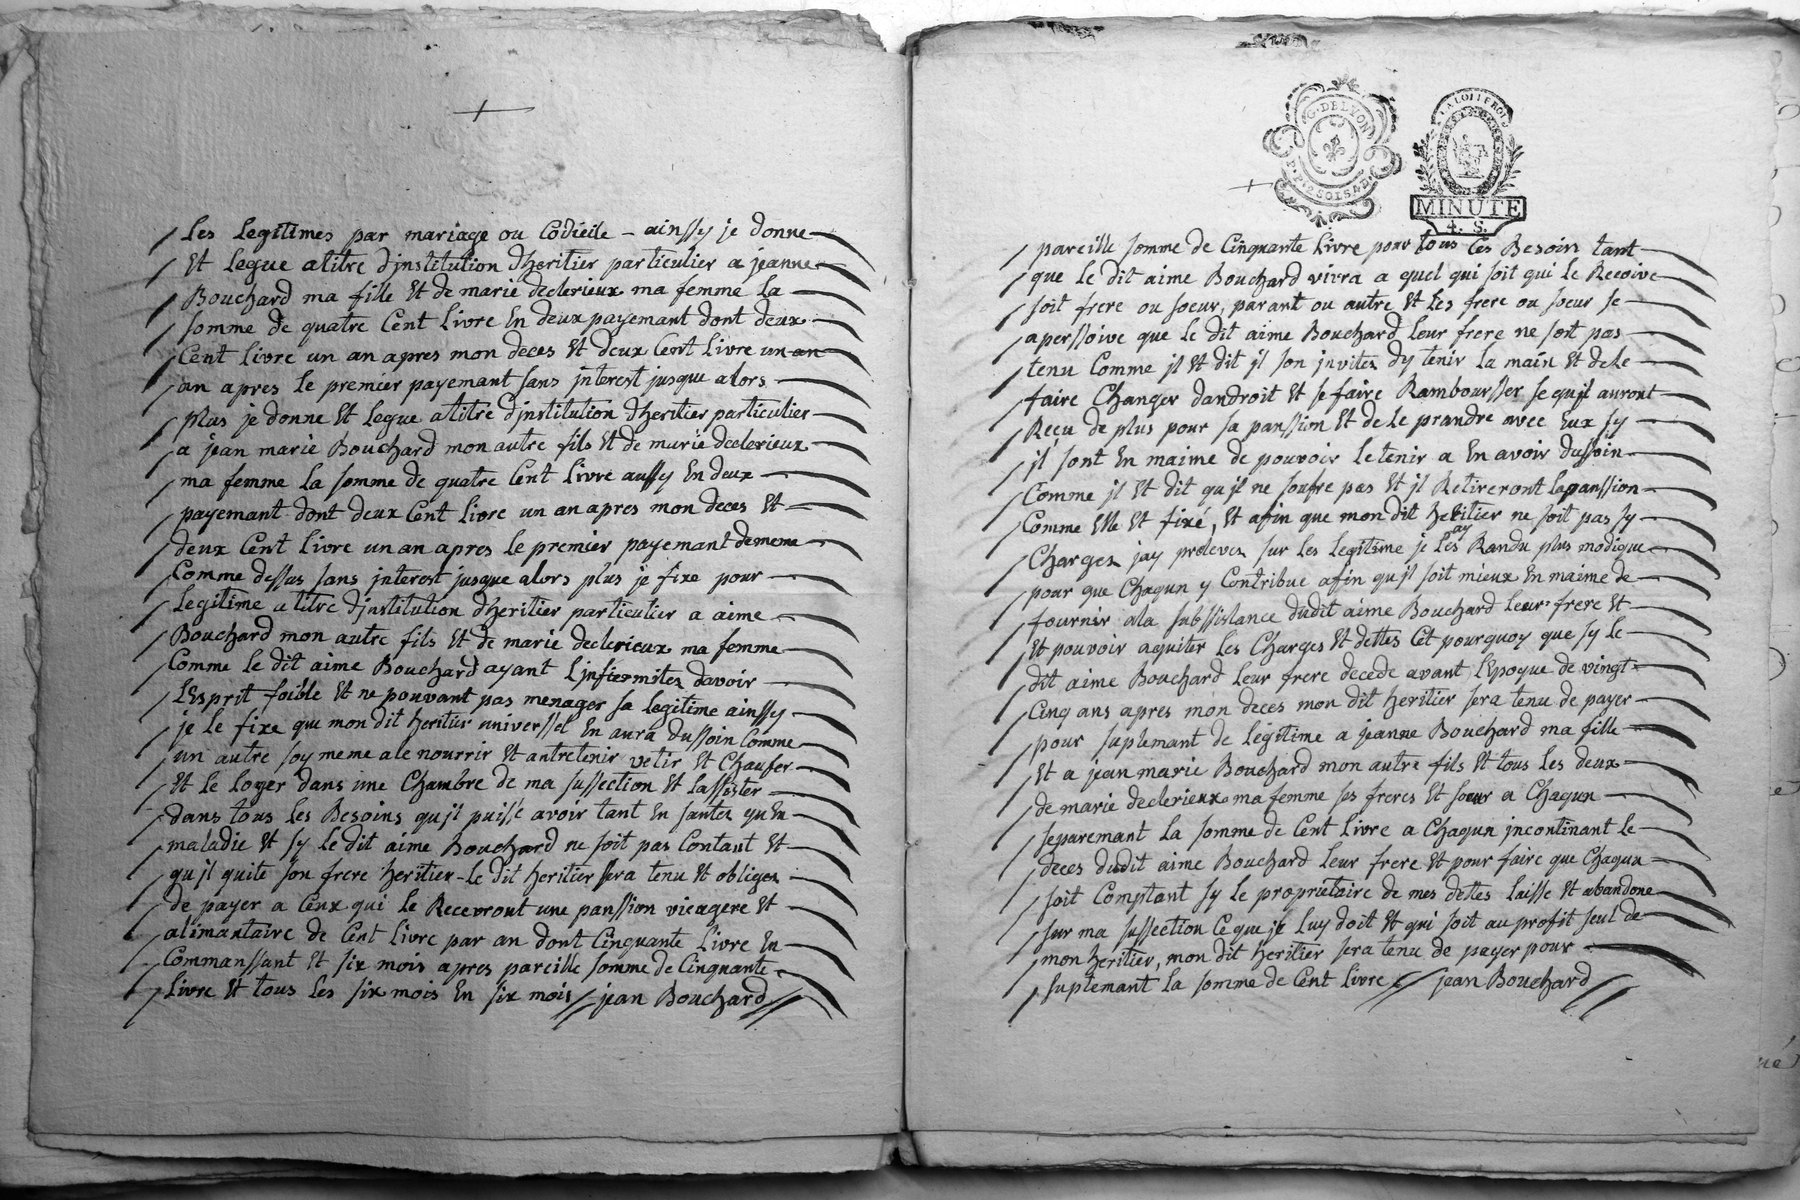 Les Legitimes par mariage ou Codicile - ainssy je donne
Et Legue atitre d'jnstitution dheritier particulier a jeanne
Bouchard ma fille Et de marie declerieux ma femme La
somme de quatre Cent Livre En deux payemant dont deux
Cent Livre un an apres mon deces Et deux Cent Livre un an
an apres le premier payemant sans jnterest jusque alors
plus je donne Et Legue atitre d'jnstitution dheritier particulier
a jean marie Bouchard mon autre fils Et de marie declerieux
ma femme La somme de quatre Cent Livre aussy En deux
payemant dont deux Cent Livre un an apres mon deces Et
deux Cent Livre un an apres le premier payemant de meme
Comme dessus sans jnterest jusque alors plus je fixe pour
Legitime a titre d'jnstitution dheritier particulier a aime
Bouchard mon autre fils Et de marie declerieux ma femme
Comme le dit aime Bouchard ayant Linfiermitez davoir
LEsprit foible Et ne pouvant pas menager sa legitime ainssy
je le fixe que mon dit heritier universsel En aura dussoin Comme
un autre soy meme a le nourrir Et antretenir vetir Et Chaufer
Et le loger dans une Chambre de ma sussection Et Lassister
dans tous les Besoins qujl puisse avoir tant En santez qu'En
maladie Et sy le dit aime Bouchard ne soit pas Contant Et
qu jl quite son frere heritier - le dit heritier sera tenu Et obligez
de payer a Ceux qui le Recevront une panssion vieagere Et
alimantaire de Cent Livre par an dont Cinquante Livre En
Commanssant Et six mois apres pareille somme de Cinquante
Livre Et tous les six mois En six mois // jean Bouchard //
G. DE LYON
P. P. 2 SOLS 4 D.
LA LOI LE ROI
MINUTE
4. S.
pareille somme de Cinquante Livre pour tous Ces Besoin tant
que le dit aime Bouchard vivra a quel qui soit qui le Recoive
soit frere ou soeur, parant ou autre Et les frere ou soeur se
aperssoive que le dit aime Bouchard leur frere ne soit pas
tenu Comme jl Et dit jl son jnvitez dy tenir la main Et de le
faire Changer dandroit Et se faire Rambourser se qujl auront
Reçu de plus pour sa panssion Et de le prandre avec Eux sy
jl sont En maime de pouvoir le tenir a En avoir dussoin
Comme jl Et dit qujl ne soufre pas Et jl Retireront la panssion
Comme Elle Et fixé, Et afin que mon dit heritier ne soit pas sy
Chargez jay prelevez sur les legitime je les ay Randu plus modique
pour que Chaqun y Contribue afin qu jl soit mieux En maime de
fournir ala subssistance dudit aime Bouchard leur frere Et
Et pouvoir aquiter les Charges Et dettes Cet pourquoy que sy le
dit aime Bouchard leur frere decede avant LEpoque de vingt
Cinq ans apres mon deces mon dit heritier sera tenu de payer
pour suplemant de Légitime a jeanne Bouchard ma fille
Et a jean marie Bouchard mon autre fils Et tous les deux
de marie declerieux ma femme ses freres Et soeur a Chaqun
separemant la somme de Cent Livre a Chaqun jncontinant le
deces dudit aime Bouchard leur frere Et pour faire que Chaqun
soit Comptant sy le proprietaire de mes dettes laisse Et abandone
sur ma sussection Ce que je Luy doit Et qui soit au profit seul de
mon heritier, mon dit heritier sera tenu de payer pour
suplemant la somme de Cent Livre // jean Bouchard //